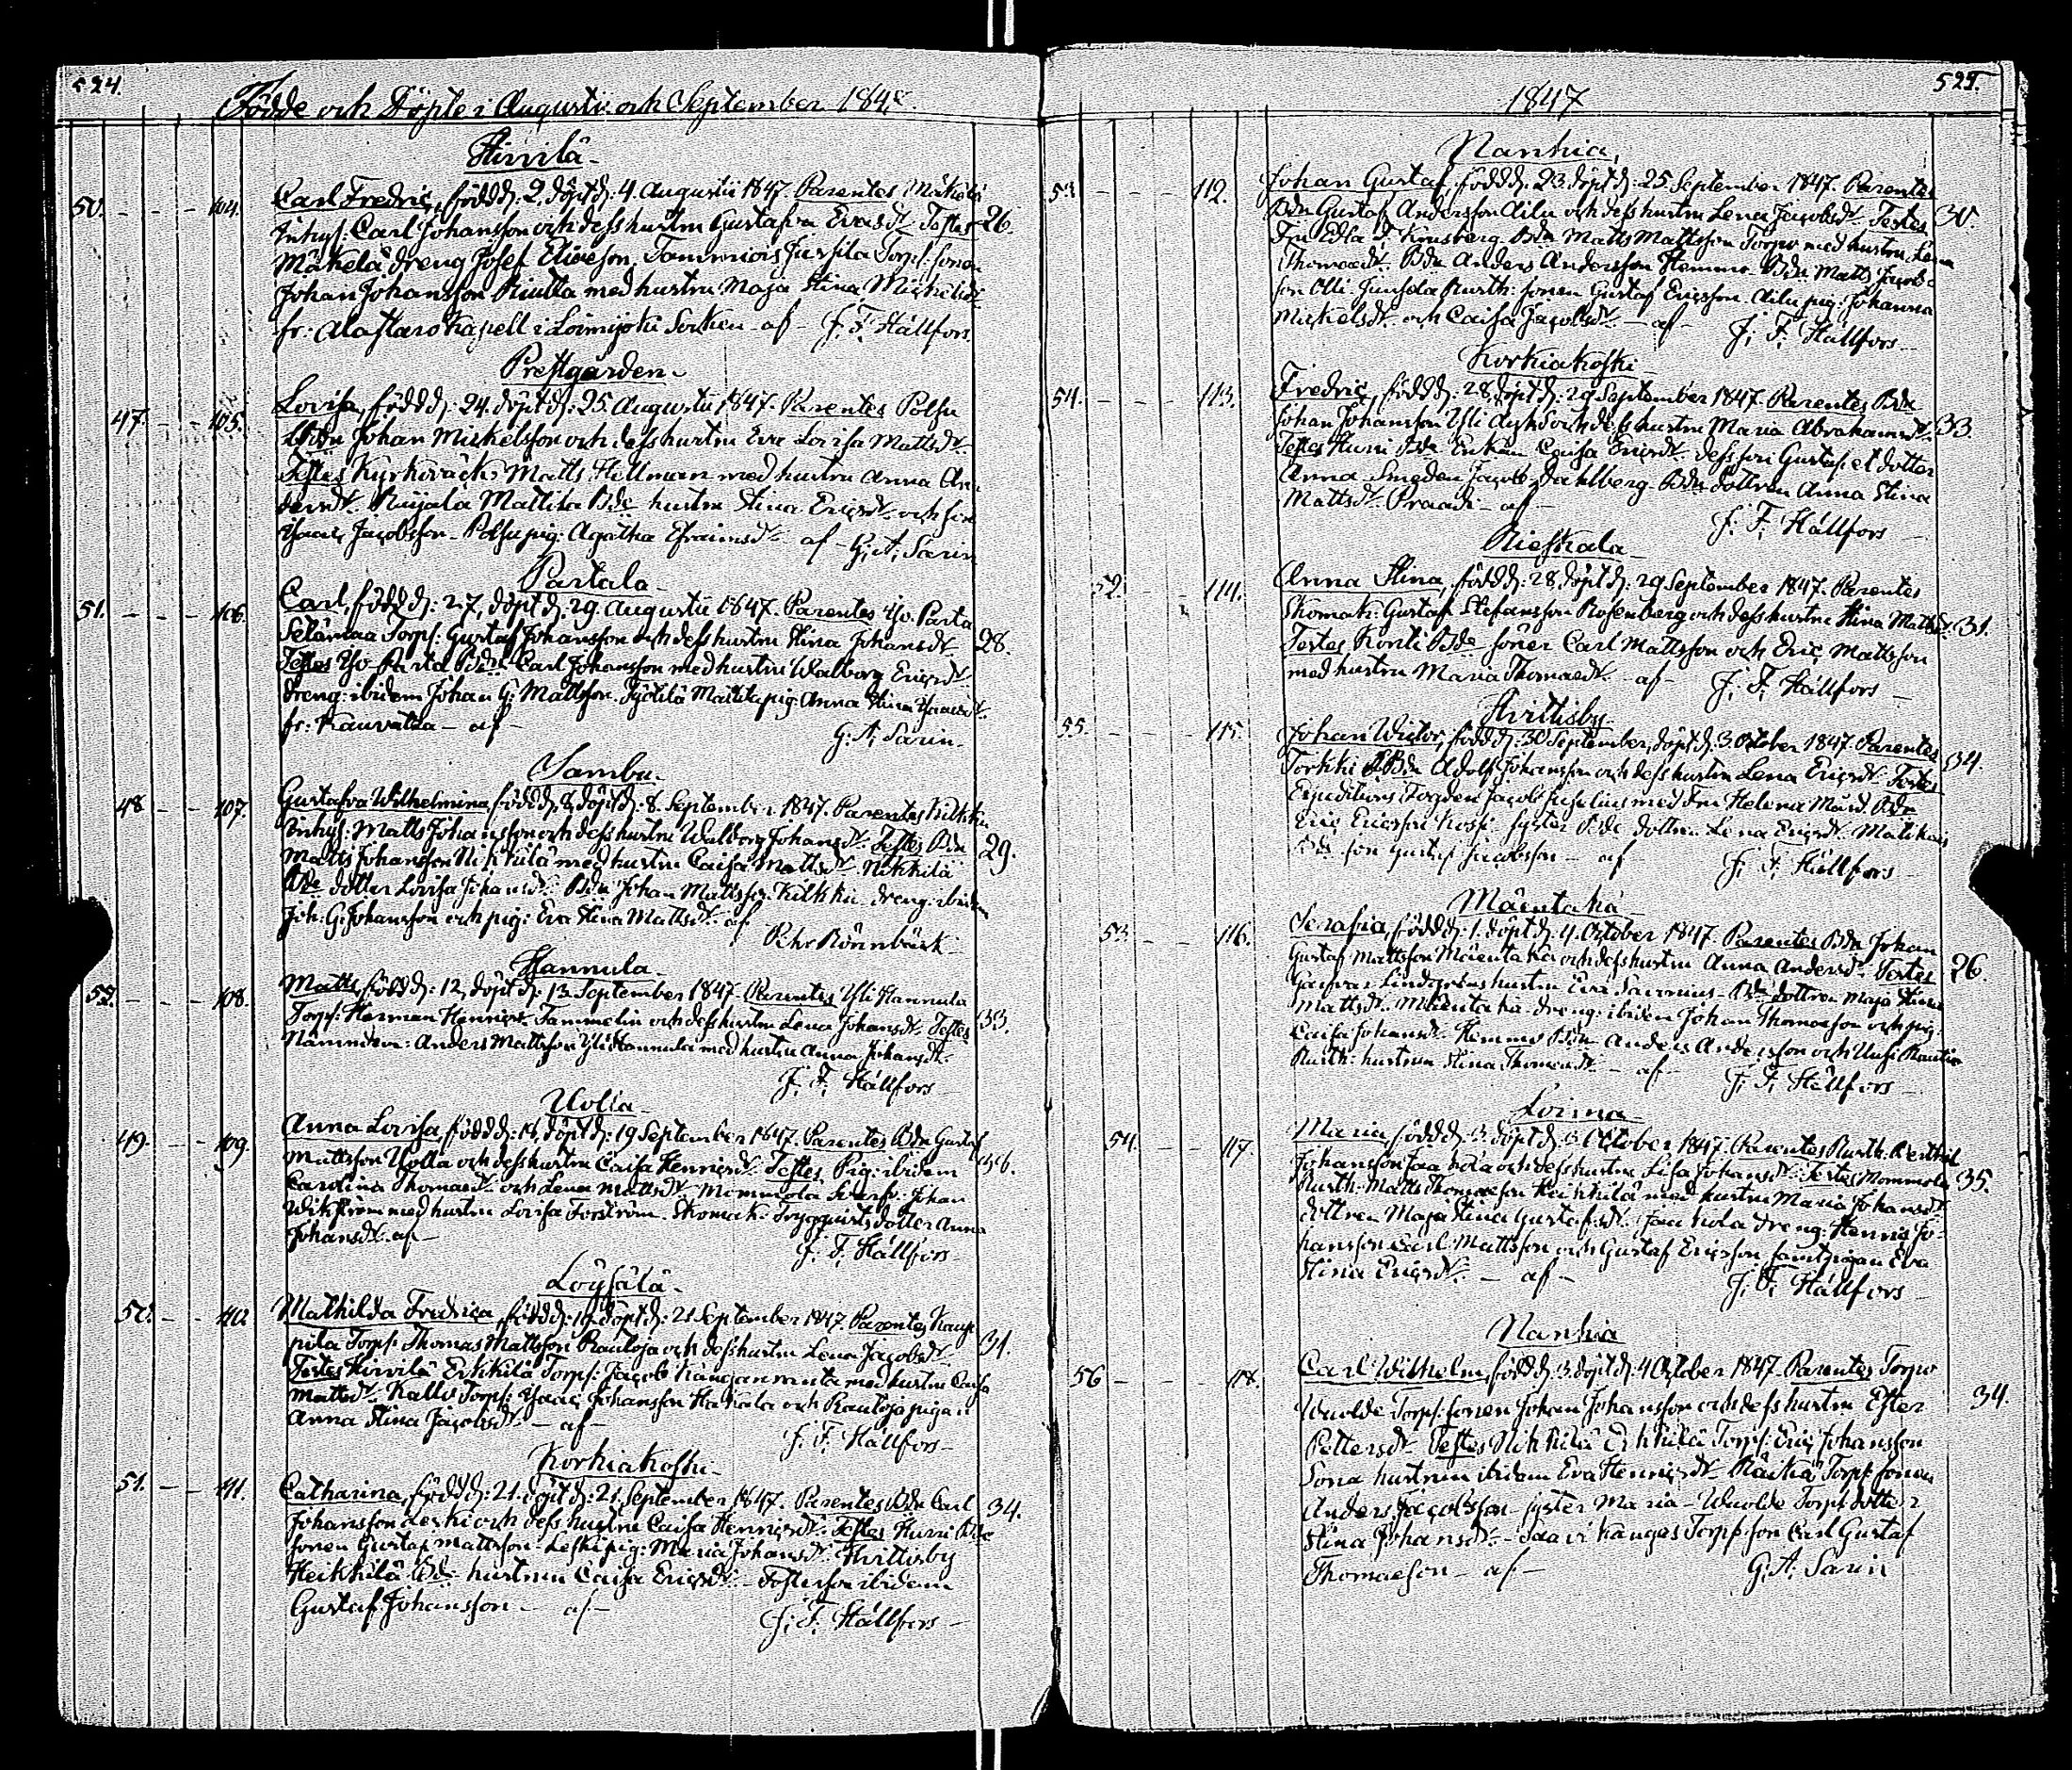 524.
Födde och Döpte i Augusti och September 184
Hirvilä
50. 104. Carl Fredric, född d: 2. döpt d: 4. Augustii 1847. Parentes Mäkelä
Inhys: Carl Johansson och dess hustru Gustafva Ericsdr. Testes 26.
Mäkelä dreng Josef Eliæson, Torp: sonen
Johan Johansson med hustru Maja Stina Michelsdr
fr: Alastaro Kapell i Loimijoki Socken – af – J. F. Hällfors.
Prestgården
47. 105. Lovisa, född d: 24. döpt d: 25. Augustii 1847. Parentes Polsu
Johan Mickelsson och dess hustru Eva Lovisa Mattsdr.
Testes Matts Hellman med hustru Anna An-
dersdr. Ruijala Mattila Bde hustru Stina Ericsdr. och son
Isaac Jacobsson – Polsu pig: Agatha Efraimsdr. af G. A. Sarin
Partala
51. 106. Carl, född d: 27, döpt d: 29. Augustii 1847. Parentes Yso Parta
Torp: Gustaf Johansson och dess hustru Stina Johansdr. 28.
Testes Yso Parta Bdn Carl Johansson med hustru Walborg Ericsdr.
dreng: ibidem Johan G: Mattsson. Mattila pig: Anna Stina Isaacsdr.
fr: Kauvatsa – af –
G. A. Sarin.
Sambu
48 107. Gustafva Wilhelmina, född d, döpt d: 8. September 1847. Parentes Kilkku
Inhys: Matts Johansson och dess hustru Walborg Johansdr. Testes Bdn
Matts Johansson Nikkilä med hustru Caisa Mattsdr. Nikkilä 29.
Bde dotter Lovisa Johansdr. Bdn Johan Mattsson Kilkku dreng: ibidem
Joh: G: Johansson och pig: Eva Stina Mattsdr. af
Pehr Rönnbäck
Hannula
108. Matts, född d: 12, döpt d: 13. September 1847. Parentes Yli Hannula
Torp: Herman Henricss. Tammelin och dess hustru Lena Johansdr. Testes 33.
Nämndem: Anders Mattsson Yli Hannula med hustru Anna Johansdr.
J. F. Hällfors
Uolla
49. 109. Anna Lovisa, född d: 18, döpt d: 19 September 1847. Parentes Bdn Gustaf
Mattsson Uolla och dess hustru Caisa Henricsdr. Testes Pig: ibidem
Carolina Thomasdr. och Lena Mattsdr. Mommola Johan
Wikström med hustru Lovisa Forström. Skomak: Trygqvists dotter Anna
Johansdr. af –
J. F. Hällfors
Löysälä
50. 110. Mathilda Fredrica, född d: 19. döpt d: 21 September 1847. Parentes Kaup
pila Torp: Thomas Mattsson Rautoja och dess hustru Lena Jacobsdr. 31.
Testes Hirvilä Erkkilä Torp: Jacob med hustru Caisa
Mattsdr. Kallo Torp: Isaac Johansson Hakala och Rautoja pigan
Anna Stina Jacobsdr. – af –
J. F. Hällfors
Korkiakoski
51. 111. Catharina, född d: 21. döpt d: 21. September 1847. Parentes Bdn Carl
Johansson Leski och dess hustru Caisa Henricsdr. Testes Hurri Bde 34.
sonen Gustaf Mattsson. Leski pig: Maria Johansdr. Hvittisby
Heikkilä Bde hustrun Caisa Ericsdr. – Fosterson ibidem
Gustaf Johansson – af –
J. F. Hällfors
525.
1847
Nanhia
53. 112. Johan Gustaf, född d: 23. döpt d: 25. September 1847. Parentes
Bdn Gustaf Andersson Äilu och dess hustru Lena Jacobsdr. Testes 30.
Fru Edla Bdn Matts Mattsson Torpo med hustru Lena
Thomasdr. Bdn Anders Andersson Hemmo. Bdn Matts Jacobs-
son Olli sonen Gustaf Ericsson. Äilu pig: Johanna
Mickelsdr. och Caisa Jacobsdr. – af –
J. F. Hällfors
Korkiakoski
54. 113. Fredric, född d: 28, döpt d: 29 September 1847. Parentes Bdn
Johan Johansson Yli och dess hustru Maria Abrahamsdr. 33.
Testes Hurri Bde Enkan Caisa Ericsdr. dess son Gustaf et dotter
Anna. Smeden Jacob Dahlberg. Bde dottren Anna Stina
Mattsdr. Praadi – af –
J. F. Hällfors
Rieskala
52. 114. Anna Stina, född d: 28, döpt d: 29 September 1847. Parentes
Skomak: Gustaf Stefansson Rosenberg och dess hustru Stina Mattsdr. 31.
Testes Konti Bde söner Carl Mattsson och Eric Mattsson
med hustru Maria Thomasdr. – af – J. F. Hällfors
Hvittisby
55. 115. Johan Wictor, född d: 30 September, döpt d: 3. October 1847. Parentes
Torkki Bdn Adolf Johansson och dess hustru Lena Ericsdr. Testes 34.
Expeditions Fogden Jacob med Fru Helena Bdn
Eric Ericsson syster Bde dottren Lena Ericsdr.
son Gustaf Jacobsson – af –
J. F. Hällfors
Mäentaka
53. 116. Serafia, född d: 1. döpt d: 4. October 1847. Parentes Bdn Johan
Gustaf Mattsson Mäentaka och dess hustru Anna Andersdr. Testes 26.
Lindgrens hustru Eva Bde dottren Maja Stina
Mattsdr. Mäentaka dreng: ibidem Johan Thomasson och pig:
Caisa Johansdr. Hemmo Bdn Anders Andersson och Uusi Rautio
hustrun Stina Thomasdr. – af –
J. F. Hällfors
Loima
54. 117. Maria, född d: 3. döpt d: October 1847. Parentes
Johansson Jaakola och dess hustru Lisa Johansdr. Testes Mommola 35.
Matts Thomasson Heikkilä med hustru Maria Johansdr.
dottren Maja Stina Gustafsdr. Jaakola dreng: Henric Jo-
hansson. Carl Mattsson och Gustaf Ericsson samt pigan Eva
Stina Ericsdr. – af –
J. F. Hällfors
Nanhia
56 118. Carl Wilhelm, född d: 3. döpt d: 4 October 1847. Parentes Torpo
Wuolde Torp: sonen Johan Johansson och dess hustru Ester 34.
Pettersdr. Testes Nikkilä Erkkilä Torp: Eric Johansson
Sona hustrun ibidem Eva Henricsdr. Torp: sonen
Anders Jacobsson – syster Maria – Wuolde Torp: dotter
Stina Johansdr. – Torp: son Carl Gustaf
Thomasson – af –
G. A. Sarin